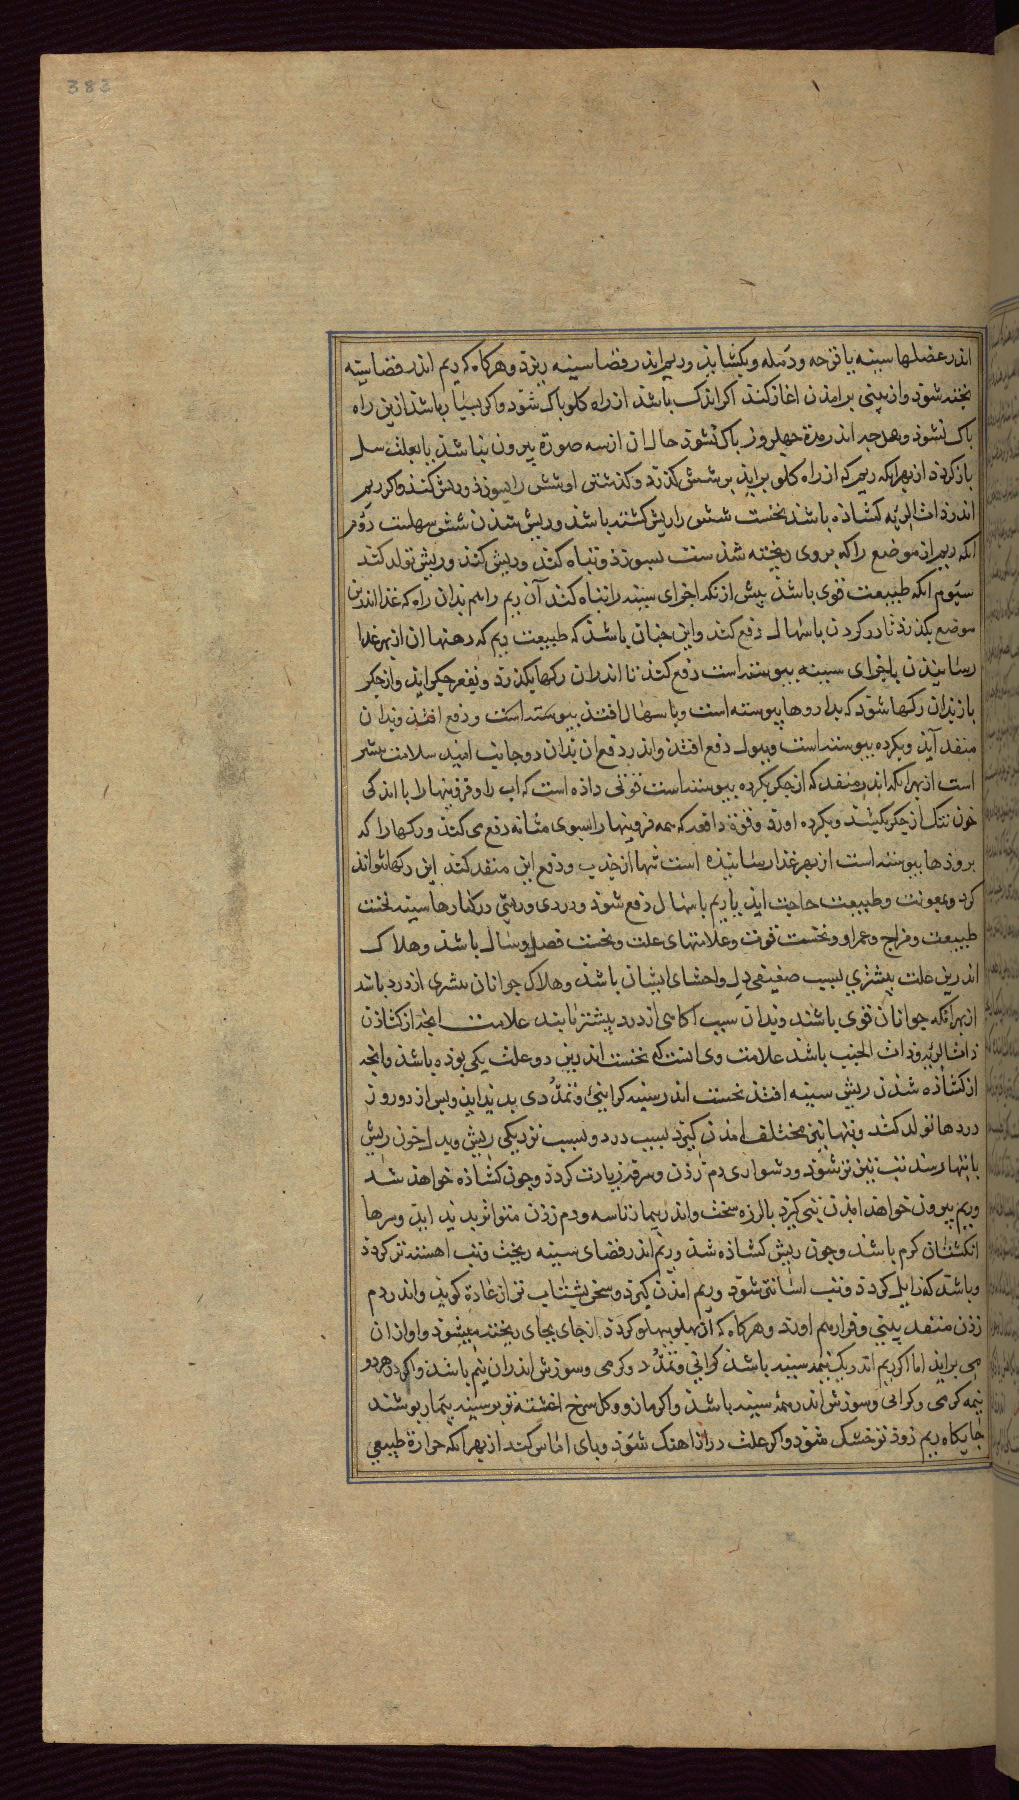 383
اندر عضلها سینه یا قرحه و دمله و بکشاید و ریم اندر فضا سینه ریزد و هرکاه که ریم اندر فضا سینه
بخته شود و از بینی برامدن اغاز کند اکر اندک باشد از راه کلو باک شود و اکر بسیار باشد ازین راه
باک نشود و هرجه اندر مدة جهل روز باک نشود حال ان از سه صورة بیرون نباشد یا بعلت سل
باز کردد از بهر انکه ریم که از راه کلو براید بر شش کذرد و کذشتن او شش را بسوزد و ریش کند و اکر ریم
اندر ذات الریه کشاده باشد نخست شش را ریش کشته باشد و ریش شدن شش سهلست دوم
انکه ریم از موضع را که بروی ریخته شذست بسوزد و تباه کند و ریش کند و ریش تولد کند
سیوم انکه طبیعت قوی باشد بیش از انکه اجزای سینه را تباه کند آن ریم را هم بدان راه که غذا اندرین
موضع بکذرد باز کردن باسهال دفع کند و این جنان باشد که طبیعت ریم که دهنها ان از بهر غذا
رسانیدن باجزای سینه بیوسته است دفع کند تا اندران رکها بکذرد و بقعر جکر اید و از جکر
باز بدان رکها شود که بدارودها بیوسته است و باسهال افتد بیوسته است و دفع افتد و بدان
منفد آید و بکرده بیوسته است و ببول دفع افتد و اندر دفع ان بدان دو جانب امید سلامت بیشتر
است از بهر انکه اندر منفد که از جکر بکرده بیوسته است قوتی داده است که اب را و فزونیها را با اندکی
خون تنک از جکر بکشد و بکرده اورد و قوة دافعه که همه فزونیها را بسوی مثانه دفع می کند و رکها را که
برودها بیوسته است از بهر غذا رسانیده است تنها از جذب و دفع این منفد کند این رکها تواند
کرد و بمعونت و طبیعت حاجت اید یا ریم باسهال دفع شود و دردی و ریشی در کنارها سینه نخست
طبیعت و مزاج و عمر او و نخست قوت و علامتهای علت و نخست فصل و سال باشد و هلاک
اندرین علت بیشتر بی سبب ضعیفی دل و احشای ایشان باشد و هلاک جوانان بیشتری از درد باشد
از بهر انکه جوانان قوی باشند و بدان سبب اکاهی از درد بیشتر یابند علامت انجه از کشادن
ذات الریه و ذات الجنب باشد علامت وی انست که نخست اندرین دو علت یکی بوده باشد و انجه
از کشاده شدن ریش سینه افتد نخست اندر سینه کرانیئ و تمددی بدید اید و بس از دو روز
دردها تولد کند و تبها تیز مختلف امدن کیرد بسبب درد و بسبب نزدیکی ریش و بدل خون ریش
بانتها رسد تب تیز تر شود و دشواری دم زدن و سرفه زیادت کردد و جون کشاده خواهد شد
و ریم بیرون خواهد امدن تبی کیرد با لرزه سخت و اندر بیمار تاسه و دم زدن متواتر بدید اید و سرها
انکشتان کرم باشد و جون ریش کشاده شد و ریم اندر فضای سینه ریخت و تب اهسته تر کردد
و باشد که زایل کردد و تب اسانتر شود و ریم امدن کیرد و سخن بشتاب تر از عادة کوید و اندر دم
زدن منفد بینی و قرار بهم اورد و هرکاه که از بهلو ببهلو کردد از جای بجای ریخته میشود و اواز ان
می براید اما اکر ریم اندر یک نیمه سینه باشد کرانی و تمدد و کرمی و سوزش اندران نیم باشد و اکر در هر دو
نیمه کرمی و کرانی و سوزش اندر همهٔ سینه باشد و اکر مازو و کل سرخ اغشته تو بر سینه بیمار بوشند
جایکاه ریم زود تر خشک شود و اکر علت دراز اهنک شود و بای اماس کند از بهر انکه حرارة طبیعی